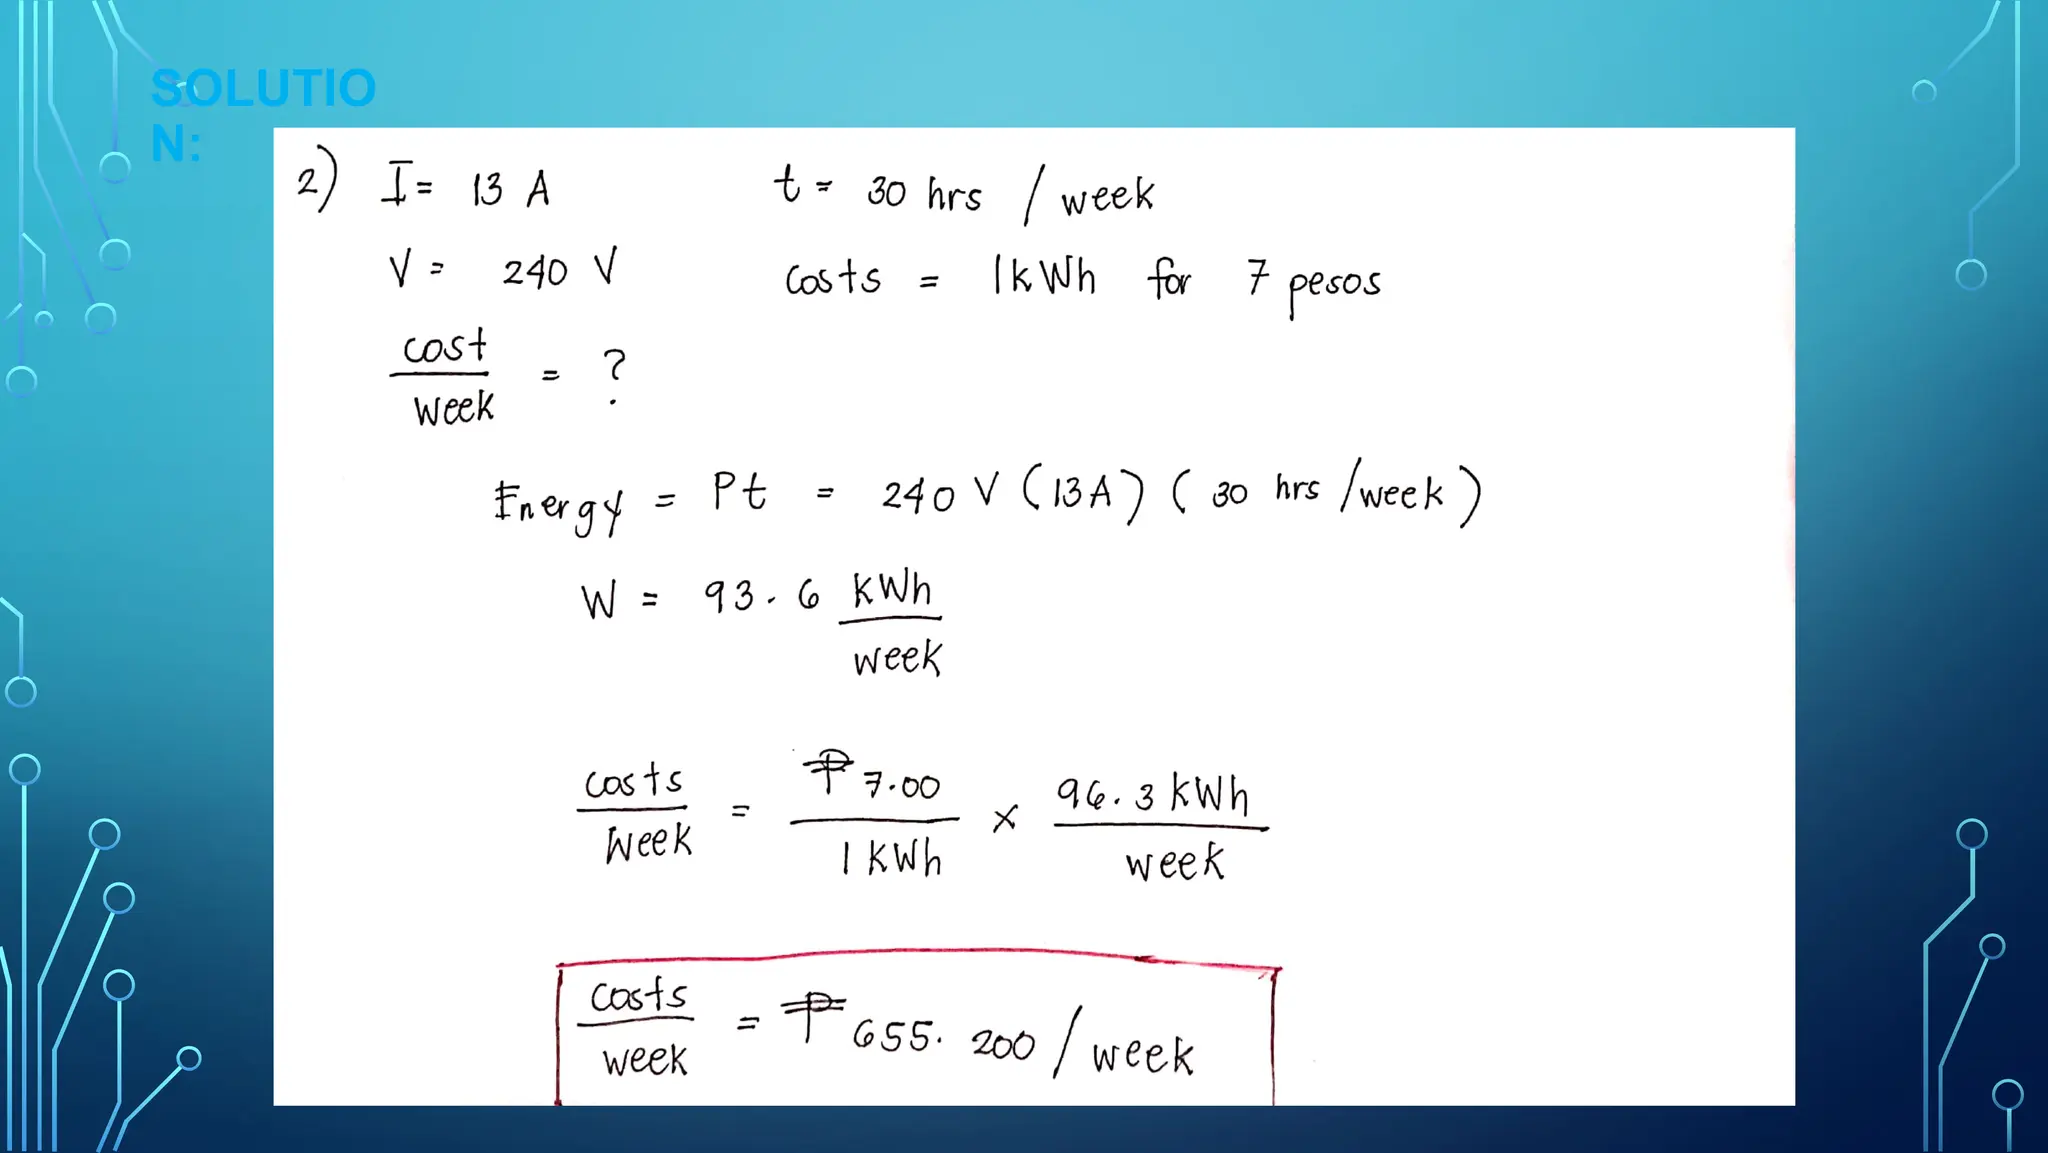 SOLUTIO
N:
2) I = 13 A t = 30 hrs / week
V = 240 V costs = 1kWh for 7 pesos
cost
week = ?
Energy = Pt = 240 V (13A) ( 30 hrs /week )
W = 93.6 kWh
week
costs
week = ₱7.00
1 kWh × 96.3 kWh
week
costs
week = ₱655.200 / week